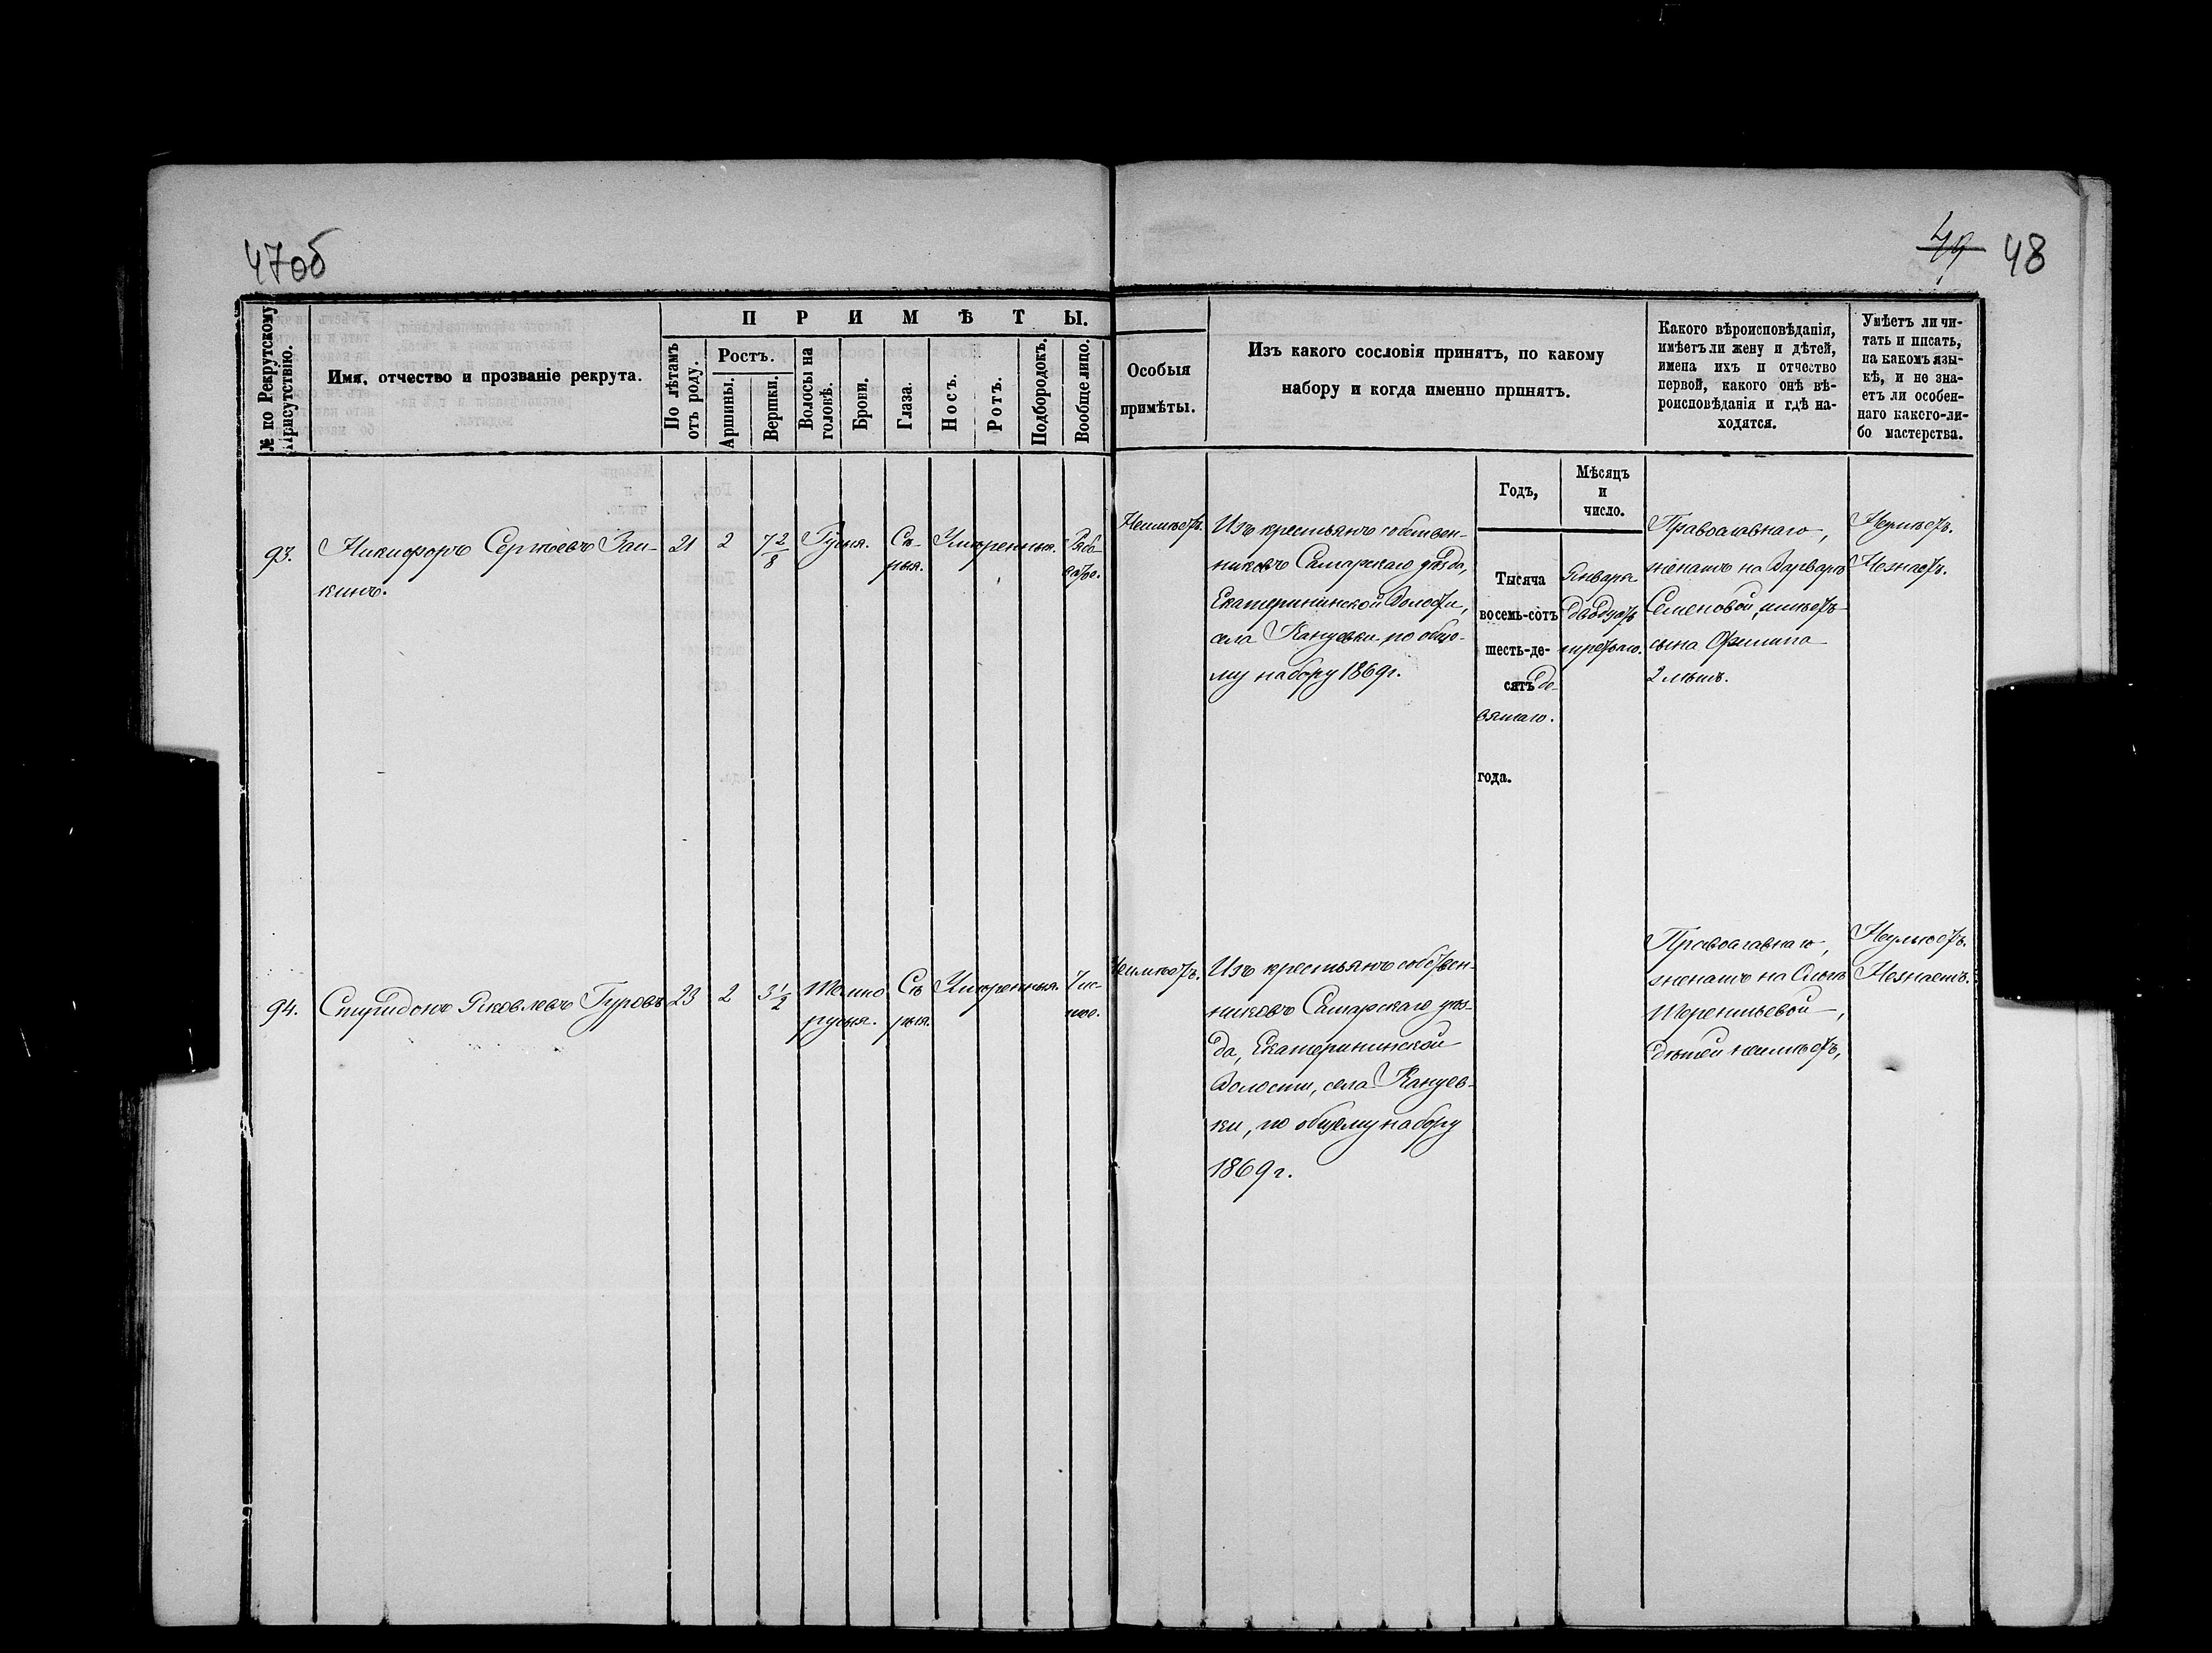 47об
49 48
№ по Рекрутскому Присутствію.
Имя, отчество и прозваніе рекрута.
ПРИМѢТЫ.
По лѣтамъ отъ роду.
Ростъ.
Аршины.
Вершки.
Волосы на головѣ.
Брови.
Глаза.
Носъ.
Ротъ.
Подбородокъ.
Вообще лицо.
Особыя
примѣты.
Изъ какого сословія принятъ, по какому
набору и когда именно принятъ.
Какого вѣроисповѣданія,
имѣетъ ли жену и дѣтей,
имена ихъ и отчество
первой, какого онѣ вѣ-
роисповѣданія и гдѣ на-
ходятся.
Умѣетъ ли чи-
тать и писать,
на какомъ язы-
кѣ, и не зна-
етъ ли особен-
наго какого-ли-
бо мастерства.
Годъ,
Мѣсяцъ
и
число.
93.
Никифоръ Сергѣевъ Заи-
кинъ.
21
2
7 2/8
Русыя.
Сѣ-
рыя.
Умѣренныя.
Рябо-
ватое.
Неимѣетъ.
Изъ крестьянъ собствен-
никовъ Самарскаго уѣзда,
Екатерининской Волости,
села Кануевки, по обще-
му набору 1869 г.
Тысяча
восемь-сотъ
шесть-де-
сятъ де-
вятаго.
года.
Января
двадцать
третьяго.
Православнаго,
женатъ на Варварѣ
Семеновой, имѣетъ
сына Филипа
2 лѣтъ.
Неумѣетъ.
Незнаетъ.
94.
Спиридонъ Яковлевъ Гуровъ
23
2
3 1/2
Темно
русыя.
Сѣ
рыя.
Умѣренныя.
Чис-
тое.
Неимѣетъ.
Изъ крестьянъ собствен-
никовъ Самарскаго уѣз-
да, Екатерининской
Волости, села Кануев-
ки, по общему набору
1869 г.
Православнаго,
женатъ на
Терентьевой,
дѣтей неимѣетъ,
Неумѣетъ.
Незнаетъ.